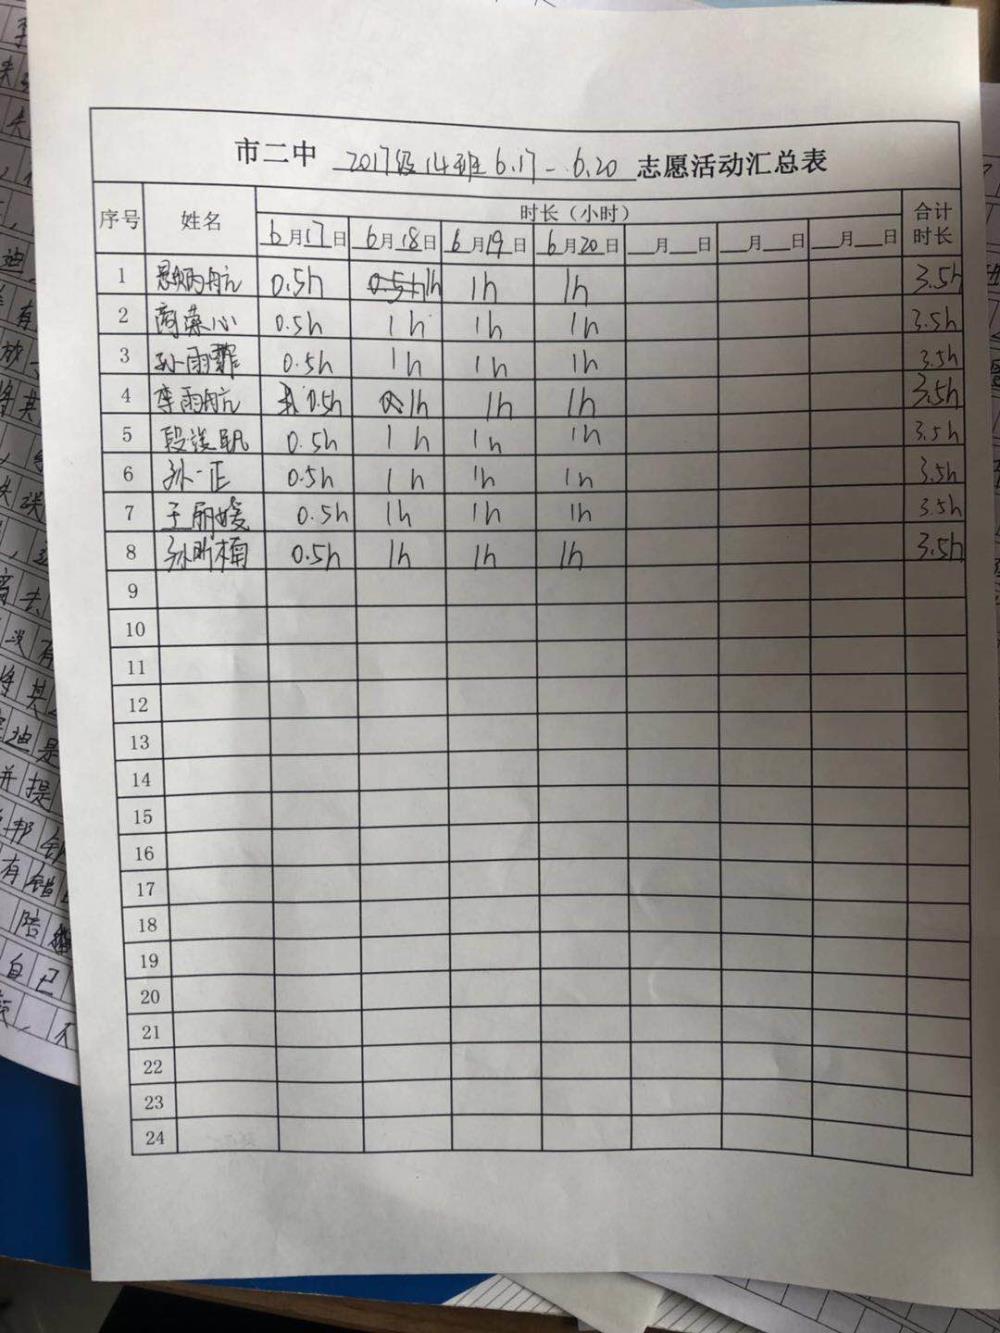 市二中 2017级14班6.17-6.20 志愿活动汇总表
序号 姓名 时长（小时） 合计时长
6月17日 6月18日 6月19日 6月20日 __月__日 __月__日 __月__日
1 0.5h 1h 1h 1h 3.5h
2 0.5h 1h 1h 1h 3.5h
3 孙雨霏 0.5h 1h 1h 1h 3.5h
4 李雨航 0.5h 1h 1h 1h 3.5h
5 0.5h 1h 1h 1h 3.5h
6 孙一正 0.5h 1h 1h 1h 3.5h
7 王丽媛 0.5h 1h 1h 1h 3.5h
8 孙昕楠 0.5h 1h 1h 1h 3.5h
9
10
11
12
13
14
15
16
17
18
19
20
21
22
23
24